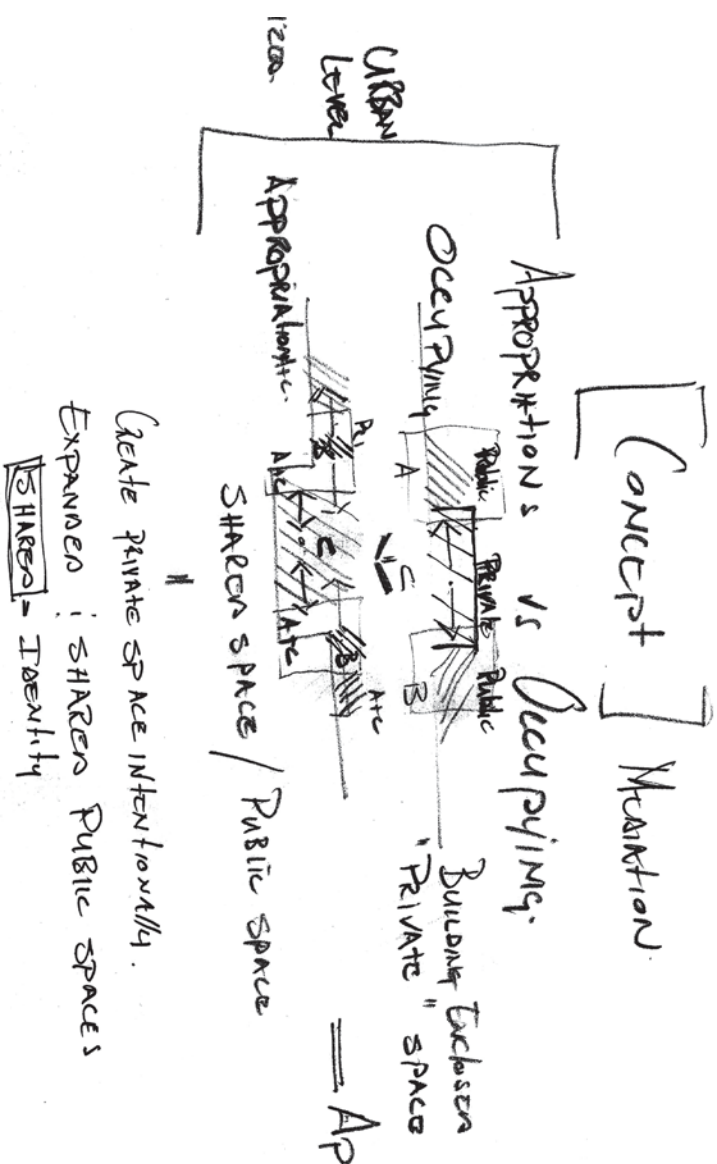 [CONCEPT] MEDIATION.
APPROPRIATIONS VS OCCUPYING.
URBAN
LEVEL
1:200.
OCCUPYING
Public
PRIVATE
Public
A
B
BUILDING ENCLOSED
"PRIVATE" SPACE
C
APPROPRIATION A+C.
B
C
B
A+C
A+C
A+C
SHARED SPACE / PUBLIC SPACE
= AP
=
CREATE PRIVATE SPACE INTENTIONALLY.
EXPANDED : SHARED PUBLIC SPACES
SHARED = IDENTITY